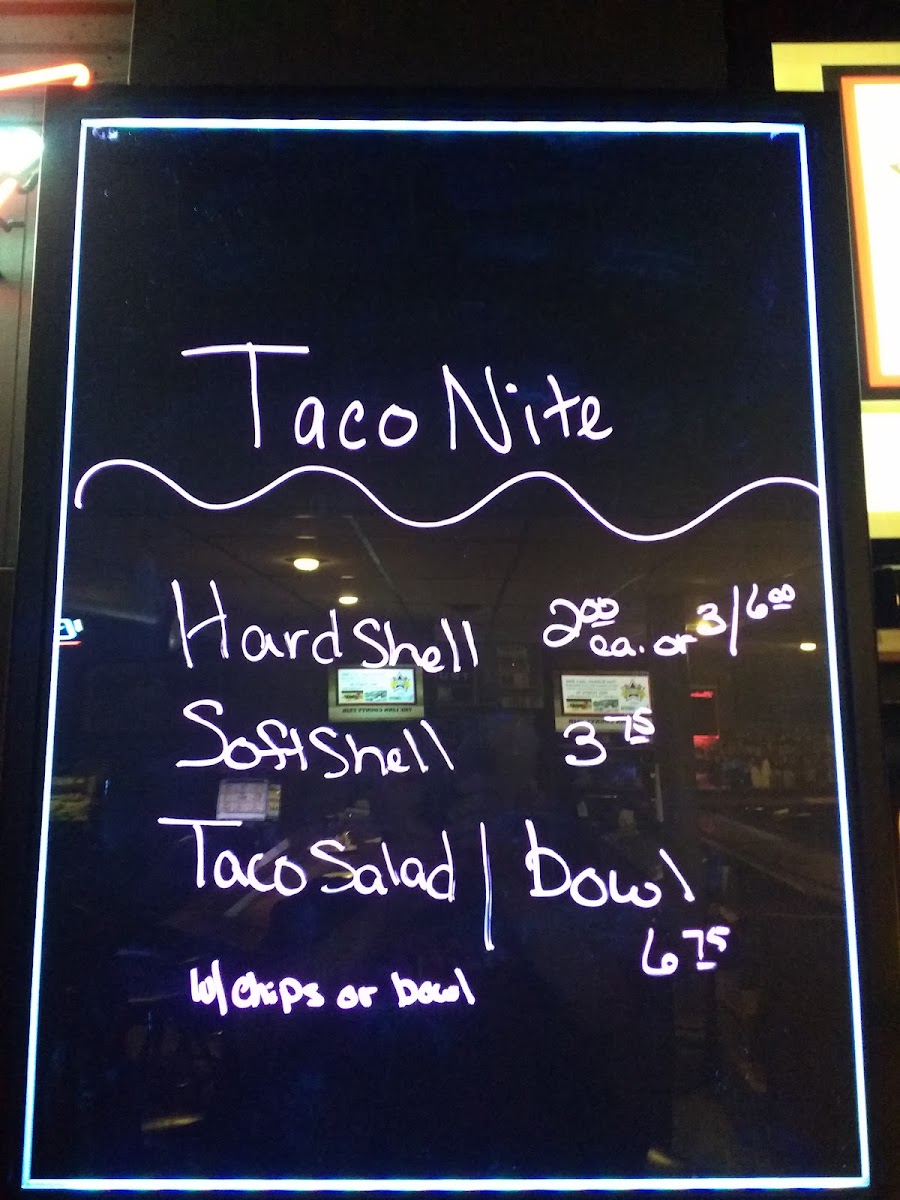 Taco Nite
Hard Shell 2.00 ea. or 3/6.00
Soft Shell 3.75
Taco Salad | bowl
6.75
w/ chips or bowl